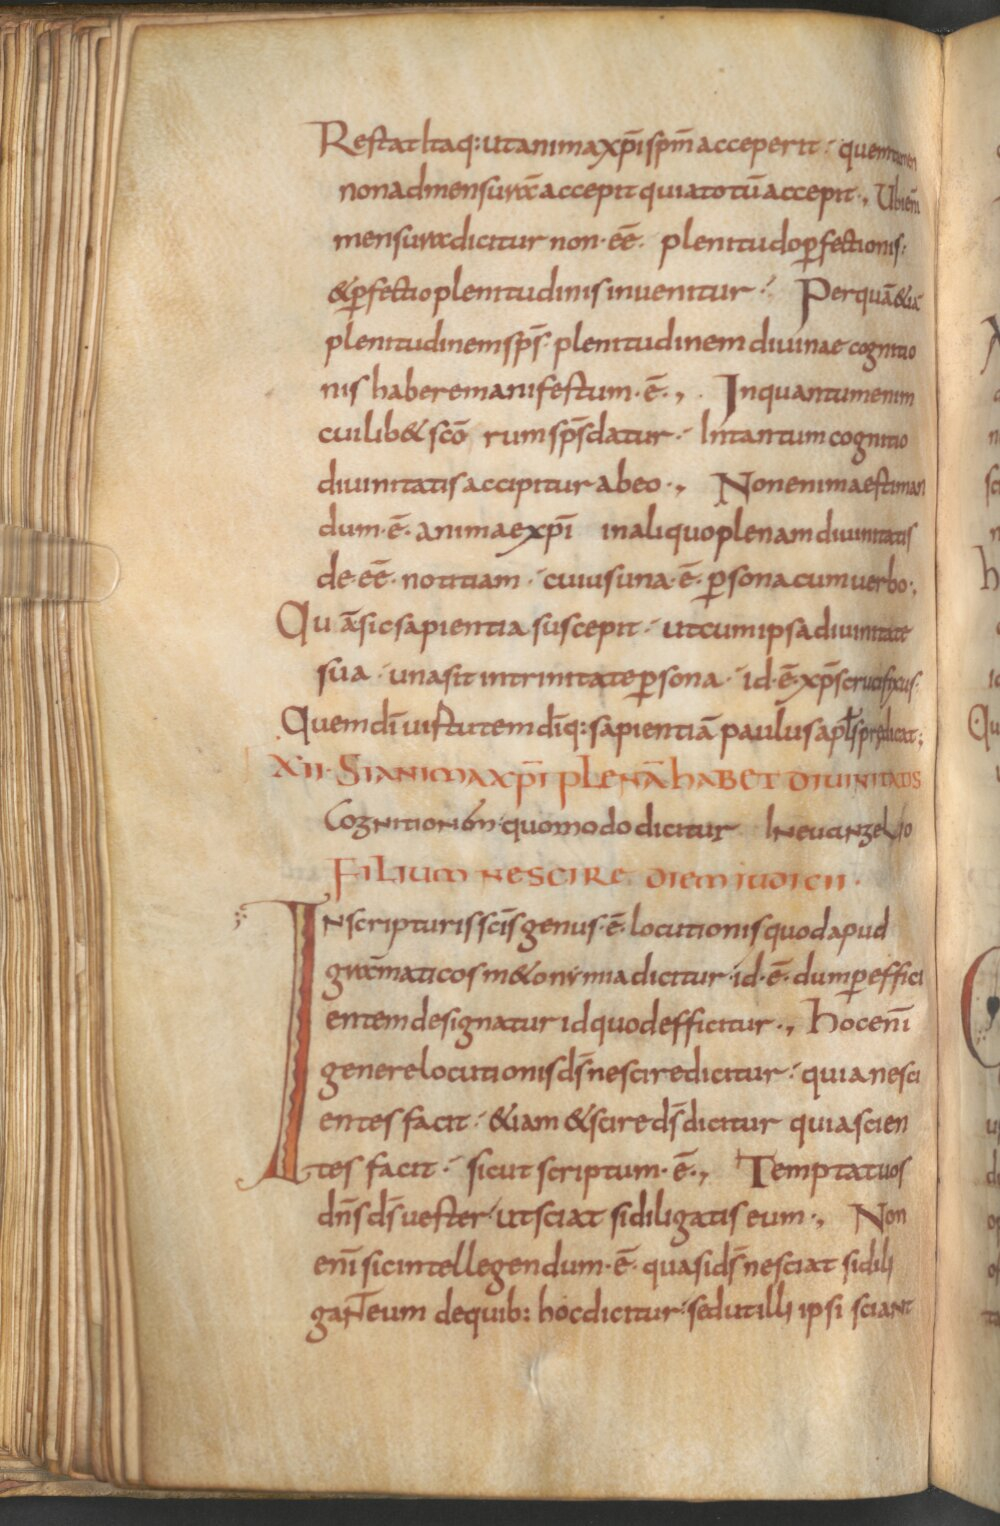 Restat Itaq: ut anima xp̄i sp̄m acceperit · quem tamen
non ad mensurā accepit quia totū accepit ·, Ubi enī
mensura dicitur non · eē · plenitudo p̄fectionis ·
& p̄fectio plenitudinis inuenitur · Per quā & iā
plenitudinem sp̄s · plenitudinem diuinae cognitio
nis habere manifestum · ē ·, · In quantum enim
cuilib& scō rum sp̄s datur · In tantum cognitio
diuinitatis accipitur ab eo ·, Non enim aestiman
dum · ē · animae xp̄i in aliquo plenam diuinitatis
de · eē · notitiam · cuius una · ē · p̄sona cum uerbo ·,
Quā sic sapientia suscepit · ut cum ipsa diuinitate
sua · una sit in trinitate p̄sona · id · ē · xp̄s crucifixus ·
Quem dī uirtutem dīq: sapientiā paulus apl̄s predicat ;
XII · SI ANIMA XP̄I PLENĀ HABET DIUINITATIS
Cognitionem · quomodo dicitur In euangelio
FILIUM NESCIRE DIEM IUDICII ·
In scripturis sc̄is genus · ē · locutionis quod apud
grammaticos m&onymia dicitur · id · ē · dum p̄ effici
entem designatur id quod efficitur ·, hoc enī
genere locutionis ds̄ nescire dicitur · quia nesci
entes facit · &iam & scire ds̄ dicitur quia scien
tes facit · sicut scriptum · ē ·, Temptat uos
dn̄s ds̄ uester · ut sciat si diligatis eum ·, Non
enī sic intellegendum · ē · quasi ds̄ nesciat si dili
gant eum de quib: hoc dicitur · sed ut illi ipsi sciant